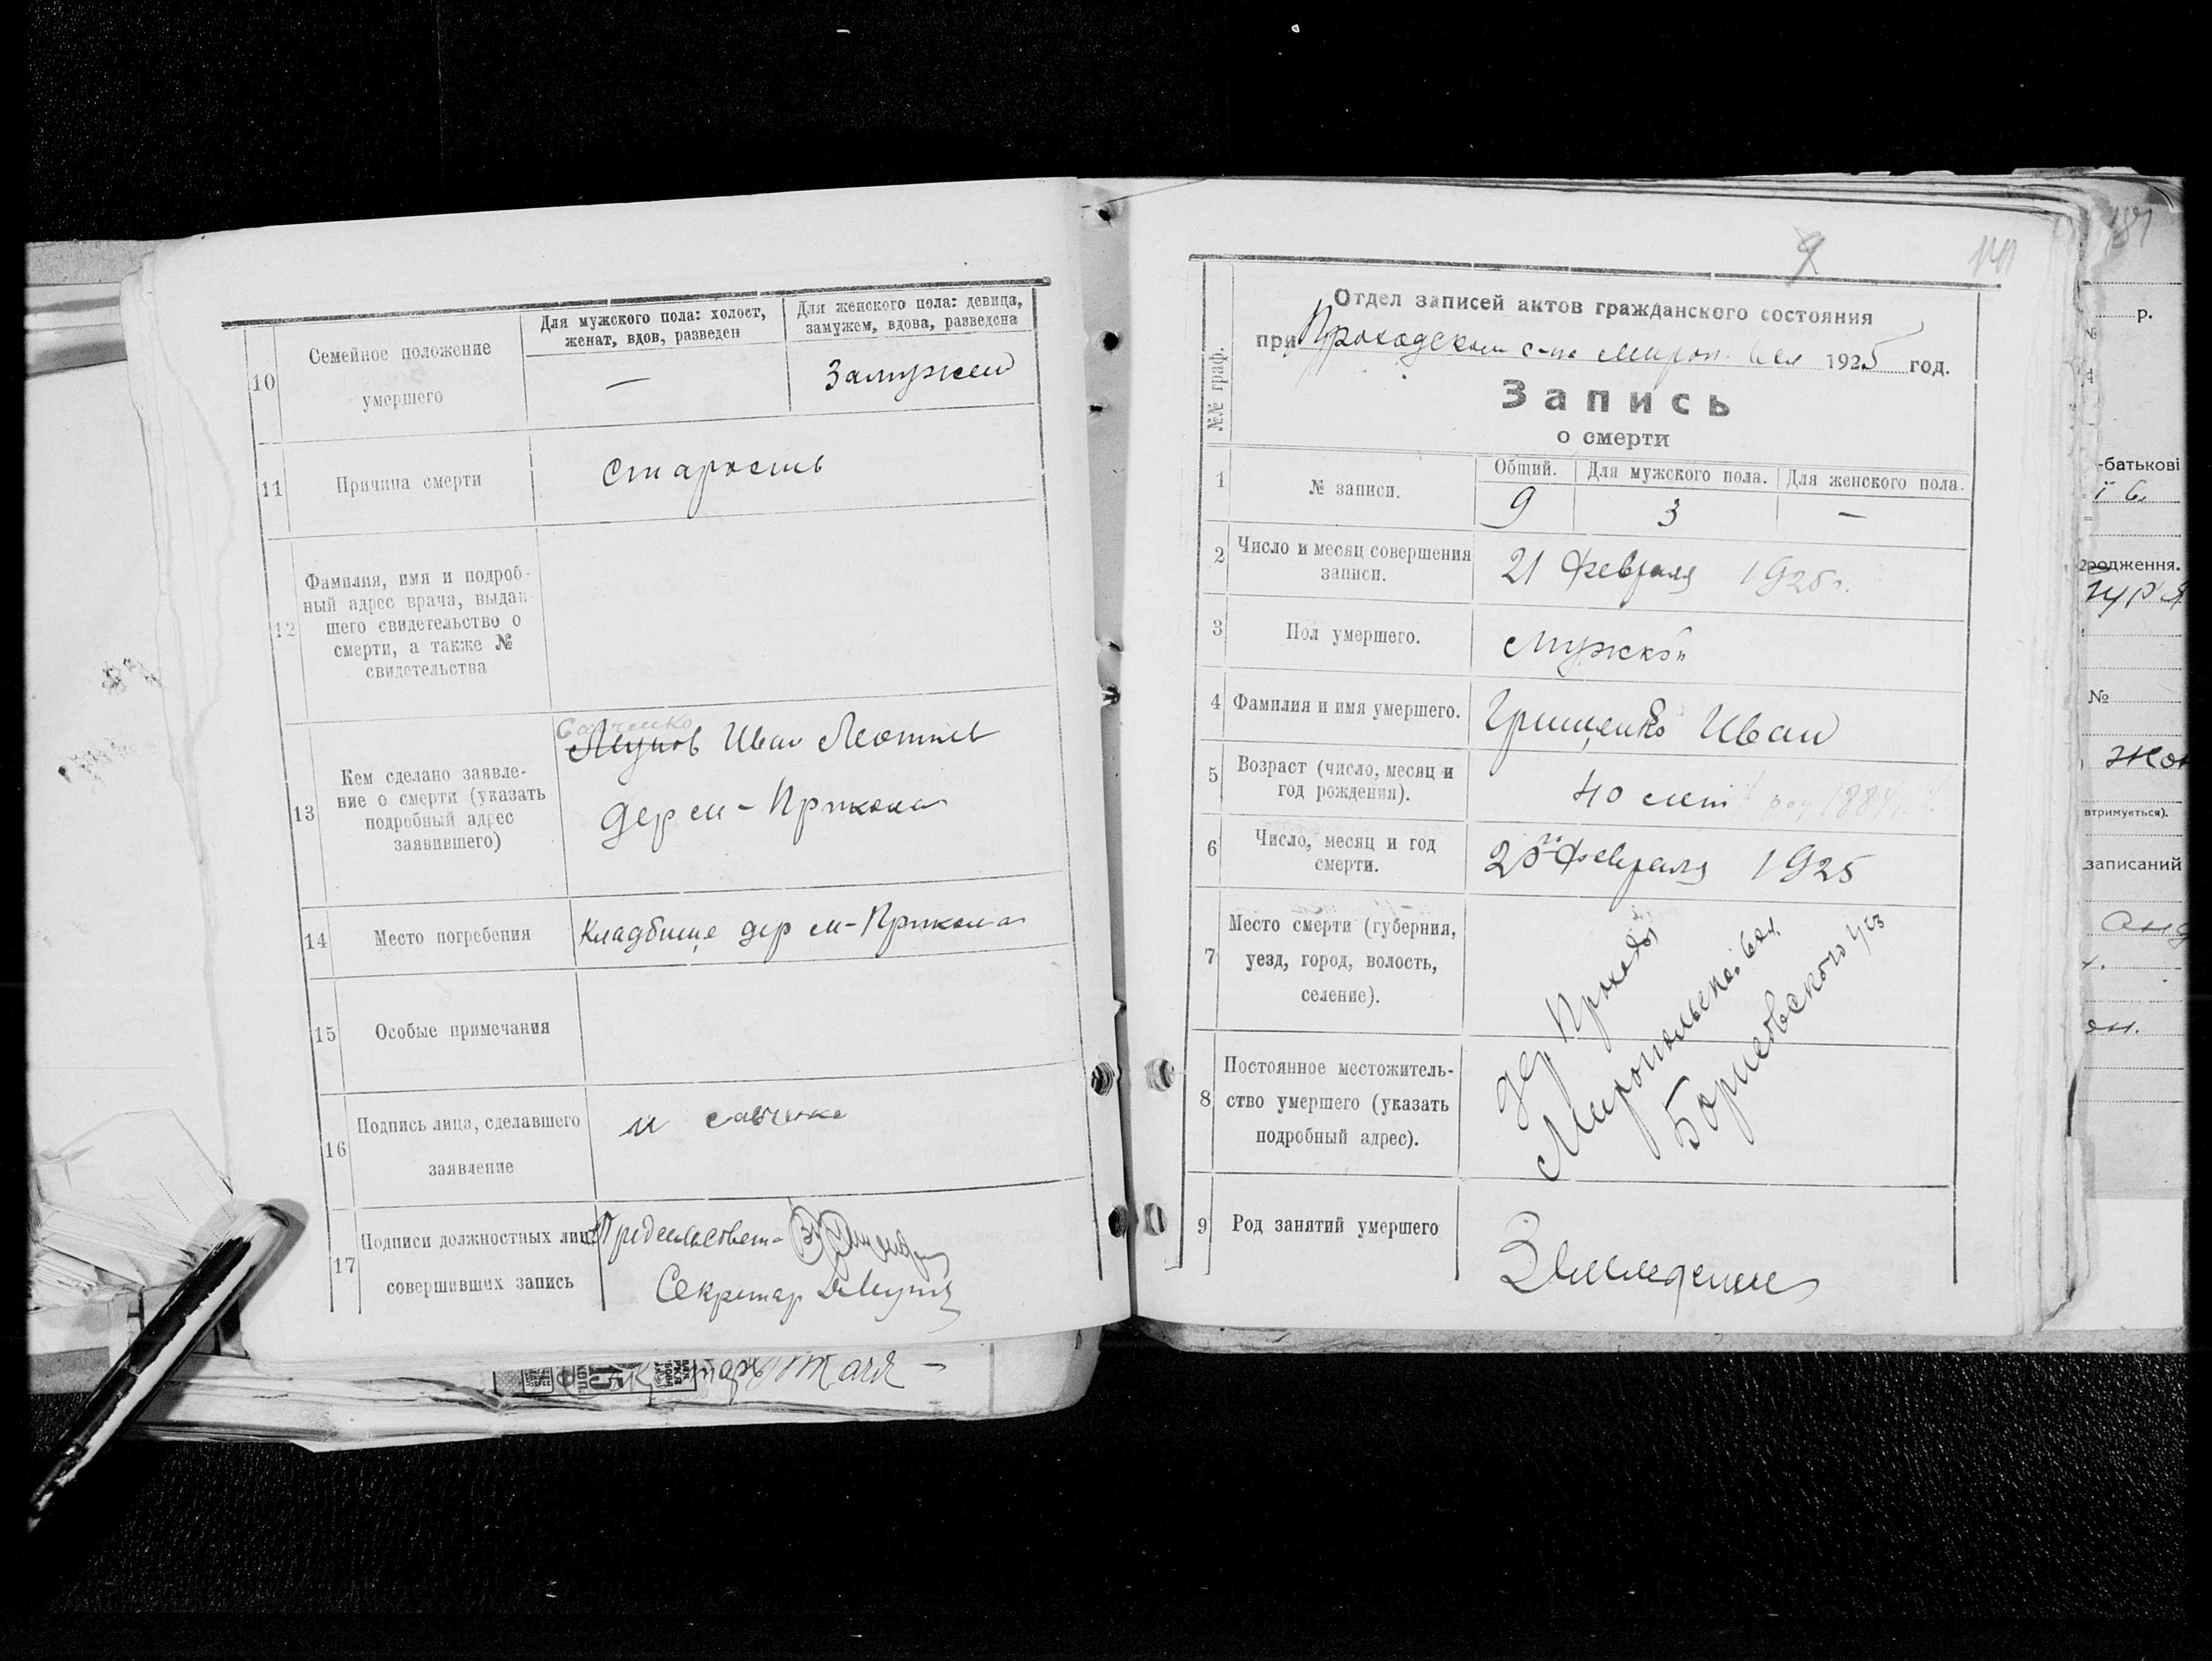 10
Семейное положение
умершего
Для мужского пола: холост,
женат, вдов, разведен
Для женского пола: девица,
замужем, вдова, разведена
—
Замужем
11
Причина смерти
Старость
12
Фамилия, имя и подроб-
ный адрес врача, выдав-
шего свидетельство о
смерти, а также №
свидетельства
13
Кем сделано заявле-
ние о смерти (указать
подробный адрес
заявившего)
Савченко
Иван
дер м-
14
Место погребения
Кладбище дер м-
15
Особые примечания
16
Подпись лица, сделавшего
заявление
И савченко
17
Подписи должностных лиц,
совершивших запись
Секретар
9
141
№№ граф.
Отдел записей актов гражданского состояния
при 1925 год.
Запись
о смерти
1
№ записи.
Общий.
Для мужского пола.
Для женского пола.
9
3
—
2
Число и месяц совершения
записи.
21 Февраля 1925 г.
3
Пол умершего.
Мужской
4
Фамилия и имя умершего.
Грищенко Иван
5
Возраст (число, месяц и
год рождения).
40 лет / род 1884 г. /
6
Число, месяц и год
смерти.
20го Февраля 1925
7
Место смерти (губерния,
уезд, город, волость,
селение).
8
Постоянное местожитель-
ство умершего (указать
подробный адрес).
де Проходы
Миропольской вол
Борисовского уез
9
Род занятий умершего
Земледелие
187
р.
№
-батькові
родження.
№
втримується).
записаний
15
КОП.